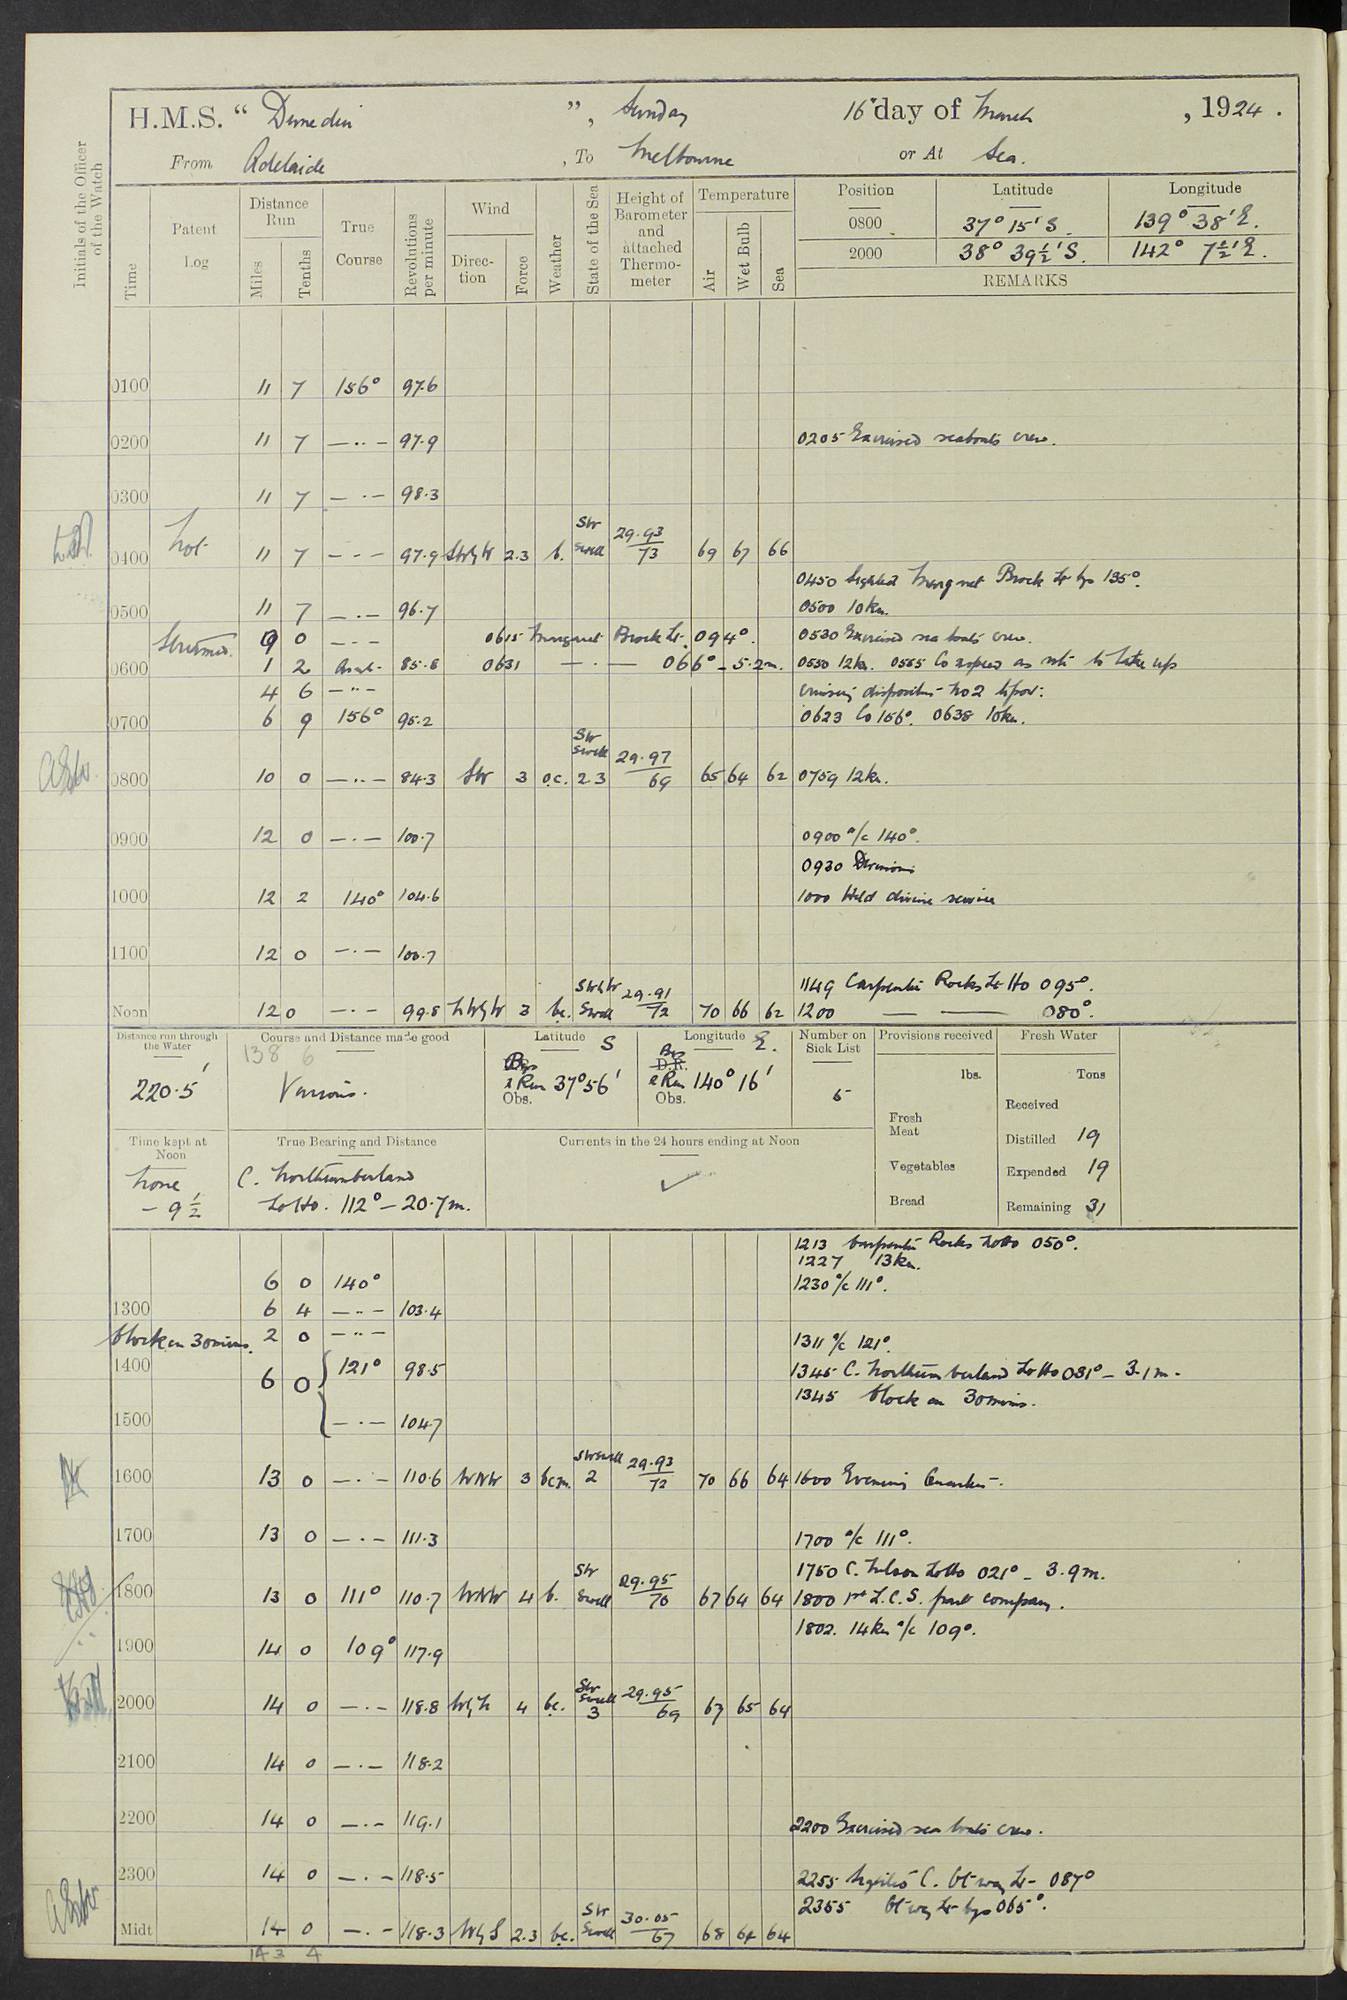 H.M.S. “ Dunedin ”, Sunday 16th day of March , 1924 .
From Adelaide , To Melbourne or At Sea.
Initials of the Officer of the Watch
Time Patent Log Distance Run Miles Tenths True Course Revolutions per minute Wind Direction Force Weather State of the Sea Height of Barometer and attached Thermometer Temperature Air Wet Bulb Sea
Position Latitude Longitude
0800 37° 15' S. 139° 38' E.
2000 38° 39½' S. 142° 7½' E.
REMARKS
0100 11 7 156° 97.6
0200 11 7 — ·· — 97.9 0205 Exercised seaboats crew.
0300 11 7 — · — 98.3
0400 Not 11 7 — · — 97.9 SWbyW 2.3 b. SW Swell 29.93 73 69 67 66
0450 Sighted Margaret Brock Lt brg 135°.
0500 11 7 — · — 96.7 0500 10 kn.
Streamed. 9 0 — · — 0615 Margaret Brock Lt. 094°. 0530 Exercised sea boats crew.
0600 1 2 85.8 0631 — · — 066° – 5.2m. 0550 12 kn. 0555 Co & speed as req to take up
4 6 — ·· — cruising disposition No 2
0700 6 9 156° 95.2 0623 Co 156°. 0638 10 kn.
0800 10 0 — ·· — 84.3 SW 3 o.c. SW Swell 2.3 29.97 69 65 64 62 0759 12 kn.
0900 12 0 — · — 100.7 0900 a/c 140°.
0930 Divisions
1000 12 2 140° 104.6 1000 Held divine service
1100 12 0 — · — 100.7
1149 Carpenter Rocks Lt Ho 095°.
Noon 12 0 — · — 99.8 3 bc. SWbyW Swell 29.91 72 70 66 62 1200 — — 080°.
Distance run through the Water 220.5'
Course and Distance made good 138 6 Various.
Latitude S Brgs & Run 37° 56' Obs.
Longitude E. Brgs D.R. & Run 140° 16' Obs.
Number on Sick List 5
Provisions received lbs. Fresh Meat Vegetables Bread
Fresh Water Tons Received Distilled 19 Expended 19 Remaining 31
Time kept at Noon Zone – 9½
True Bearing and Distance C. Northumberland Lt Ho. 112° – 20.7m.
Currents in the 24 hours ending at Noon ✓
1213 Carpenter Rocks Lt Ho 050°.
1227 13 kn.
6 0 140° 1230 a/c 111°.
1300 6 4 — ·· — 103.4
Clock on 30 mins. 2 0 — ·· — 1311 a/c 121°.
1400 6 0 { 121° 98.5 1345 C. Northumberland Lt Ho 031° – 3.1m.
1345 Clock on 30 mins.
1500 — · — 104.7
1600 13 0 — · — 110.6 WNW 3 bcm. SW swell 2 29.93 72 70 66 64 1600 Evening Quarters.
1700 13 0 — · — 111.3 1700 a/c 111°.
1750 C. Nelson Lt Ho 021° – 3.9m.
1800 13 0 111° 110.7 WNW 4 b. SW Swell 29.95 70 67 64 64 1800 1st L.C.S. part company.
1802. 14 kn a/c 109°.
1900 14 0 109° 117.9
2000 14 0 — · — 118.8 WbyN 4 bc. SW Swell 3 29.95 69 67 65 64
2100 14 0 — · — 118.2
2200 14 0 — · — 119.1 2200 Exercised sea boats crew.
2300 14 0 — · — 118.5 2255 Sighted C. Otway Lt 087°
2355 Otway Lt brg 065°.
Midt 14 0 — · — 118.3 WbyS 2.3 bc. SW Swell 30.05 67 68 64 64
143 4